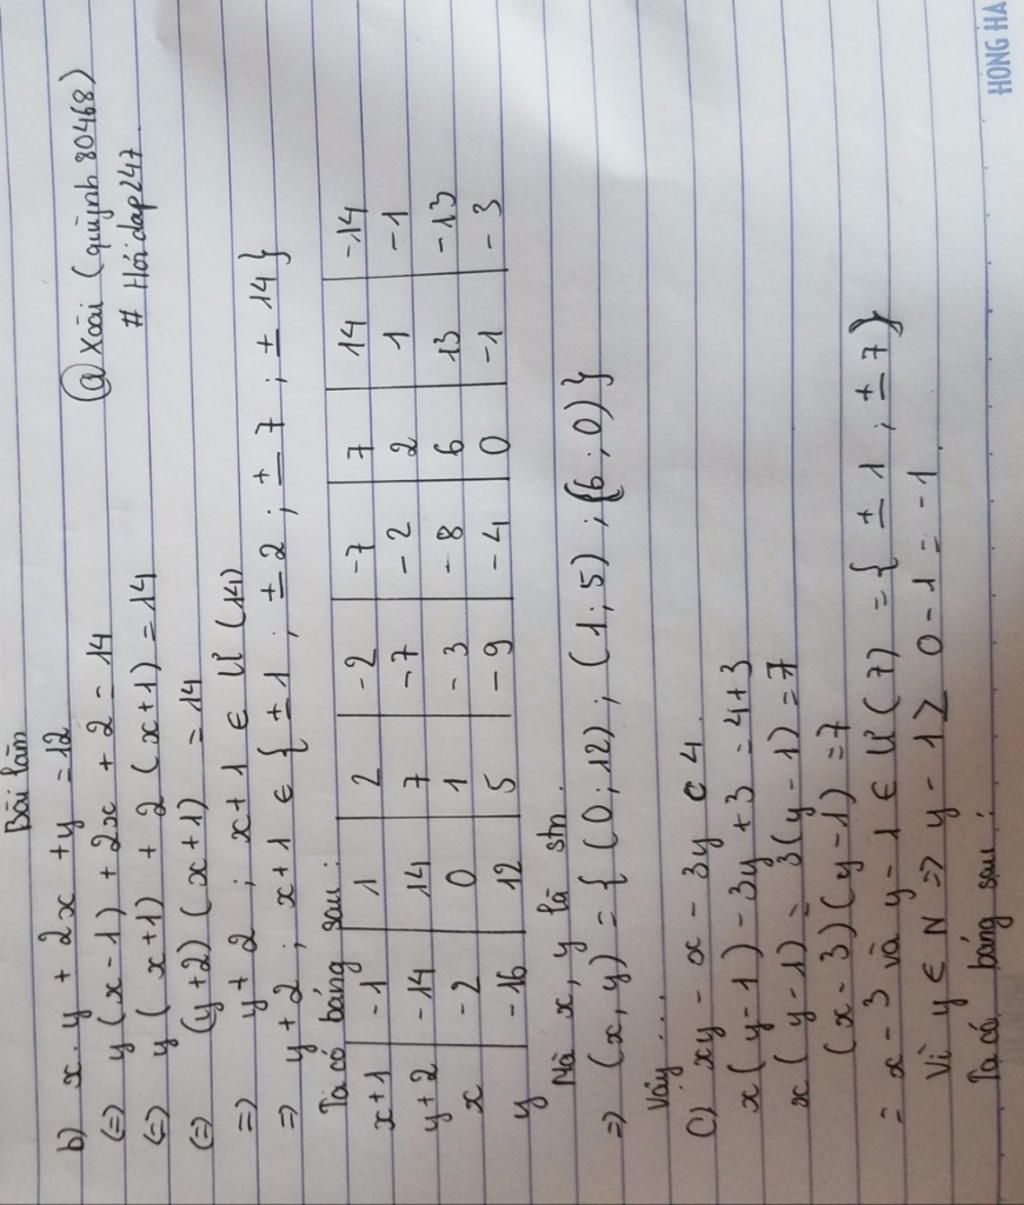 Bài làm
b) x.y + 2x + y = 12
@ Xoài (quỳnh 80468)
(=) y(x-1) + 2x + 2 = 14
# Hỏi dap247
(=) y(x+1) + 2(x+1) = 14
(=) (y+2)(x+1) = 14
=) y+2 ; x+1 ∈ Ư(14)
=> y+2 ; x+1 ∈ {±1 ; ±2 ; ±7 ; ±14}
Ta có bảng sau:
x+1 -1 1 2 -2 -7 7 14 -14
y+2 -14 14 7 -7 -2 2 1 -1
x -2 0 1 -3 -8 6 13 -13
y -16 12 5 -9 -4 0 -1 -3
Mà x, y là stn.
=> (x,y) = {(0;12), (1;5) ; (6;0)}
Vậy...
c) xy - x - 3y = 4
x(y-1) - 3y + 3 = 4+3
x(y-1) - 3(y-1) = 7
(x-3)(y-1) = 7
= x-3 và y-1 ∈ Ư(7) = {±1 ; ±7}
Vì y ∈ N => y-1 ≥ 0-1 = -1
Ta có bảng sau:
HONG HA